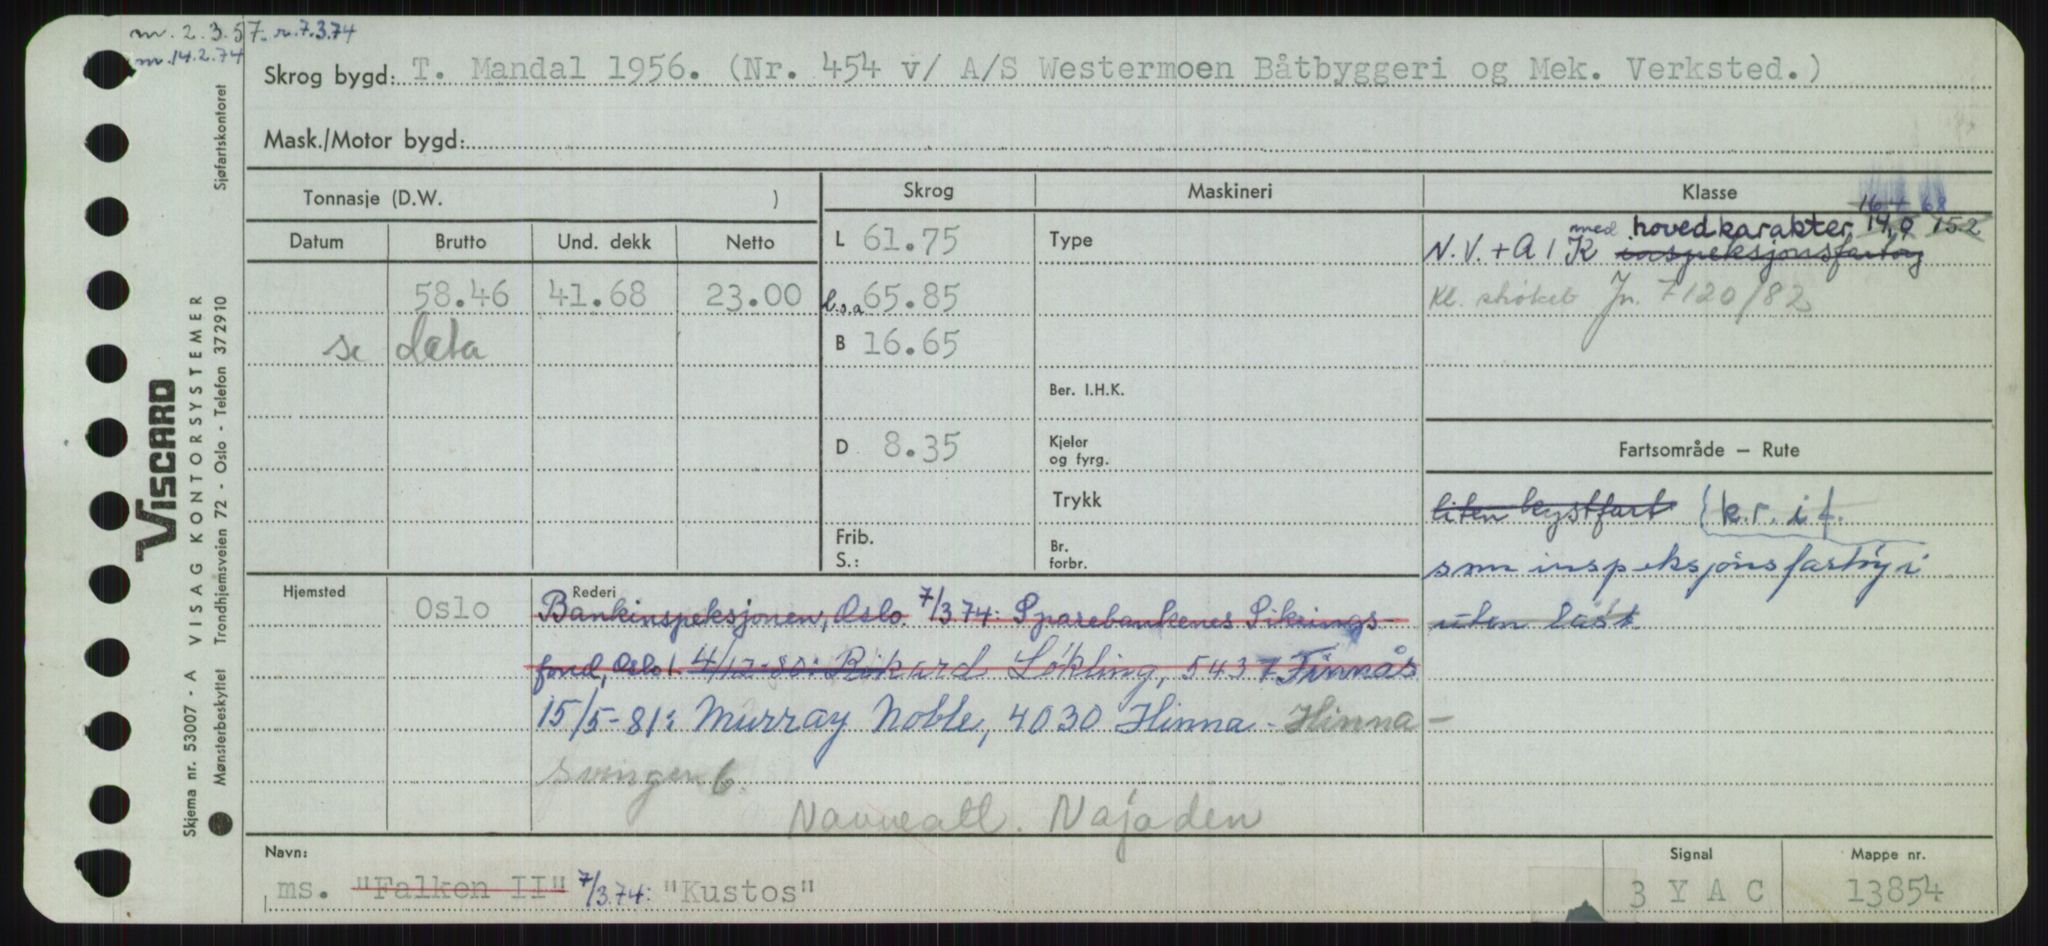 m. 2.3.57. r. 7.3.74
m. 14.2.74
Skrog bygd: T. Mandal 1956. (Nr. 454 v/ A/S Westermoen Båtbyggeri og Mek. Verksted.)
Mask./Motor bygd:
Tonnasje (D.W. )
Skrog
Maskineri
Klasse
Datum Brutto Und. dekk Netto
L 61.75
Type
med hovedkarakter 14,0 152
N.V. + A 1 K inspeksjonsfartøy
58.46 41.68 23.00
l.o.a 65.85
Kl. strøket Jn. 7120/82
se data
B 16.65
Ber. I.H.K.
D 8.35
Kjeler
og fyrg.
Fartsområde — Rute
Trykk
liten kystfart k.r. i f.
Frib.
S.:
Br.
forbr.
som inspeksjonsfartøy i
uten last
Hjemsted
Oslo
Rederi
Bankinspeksjonen, Oslo. 7/3.74: Sparebankenes Sikrings-
fond, Oslo 1. 4/12-80: Rikard Løkling, 5437 Finnås
15/5-81: Murray Noble, 4030 Hinna - Hinna-
svingen 6.
Navneatt. Najaden
Navn:
ms. "Falken II" 7/3.74: "Kustos"
Signal
3 Y A C
Mappe nr.
13854
VISCARD
VISAG KONTORSYSTEMER
Skjema nr. 53007 - A
Trondhjemsveien 72 - Oslo - Telefon 372910
Mønsterbeskyttet
Sjøfartskontoret